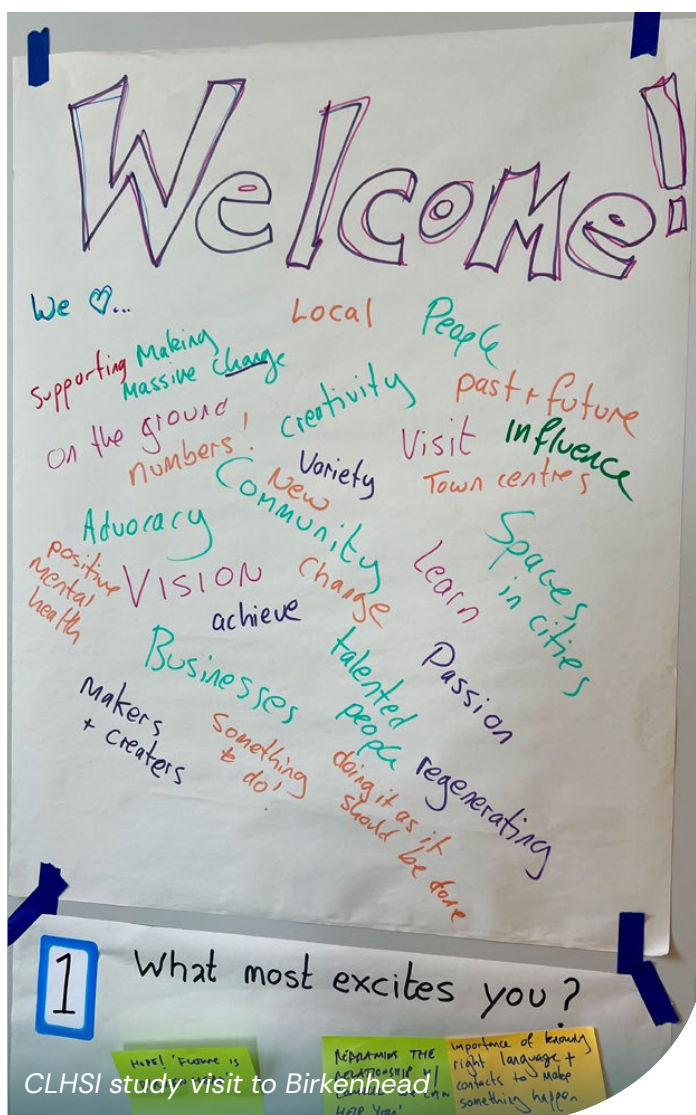 Welcome!
We ♡...
Local
People
Supporting Making
Massive change
past + future
on the ground
numbers!
creativity
Visit
influence
Variety
Town centres
New
Community
Advocacy
Spaces
in cities
positive
mental
health
VISION
change
Learn
achieve
Businesses
talented
people
Passion
Makers
+ creaters
Something
to do!
doing it as it
should be done
regenerating
1
What most excites you?
HOPE! 'FUTURE IS
REFRAMING THE
RELATIONSHIP W/
HELP YOU!'
importance of knowing
right language +
contacts to make
something happen
CLHSI study visit to Birkenhead